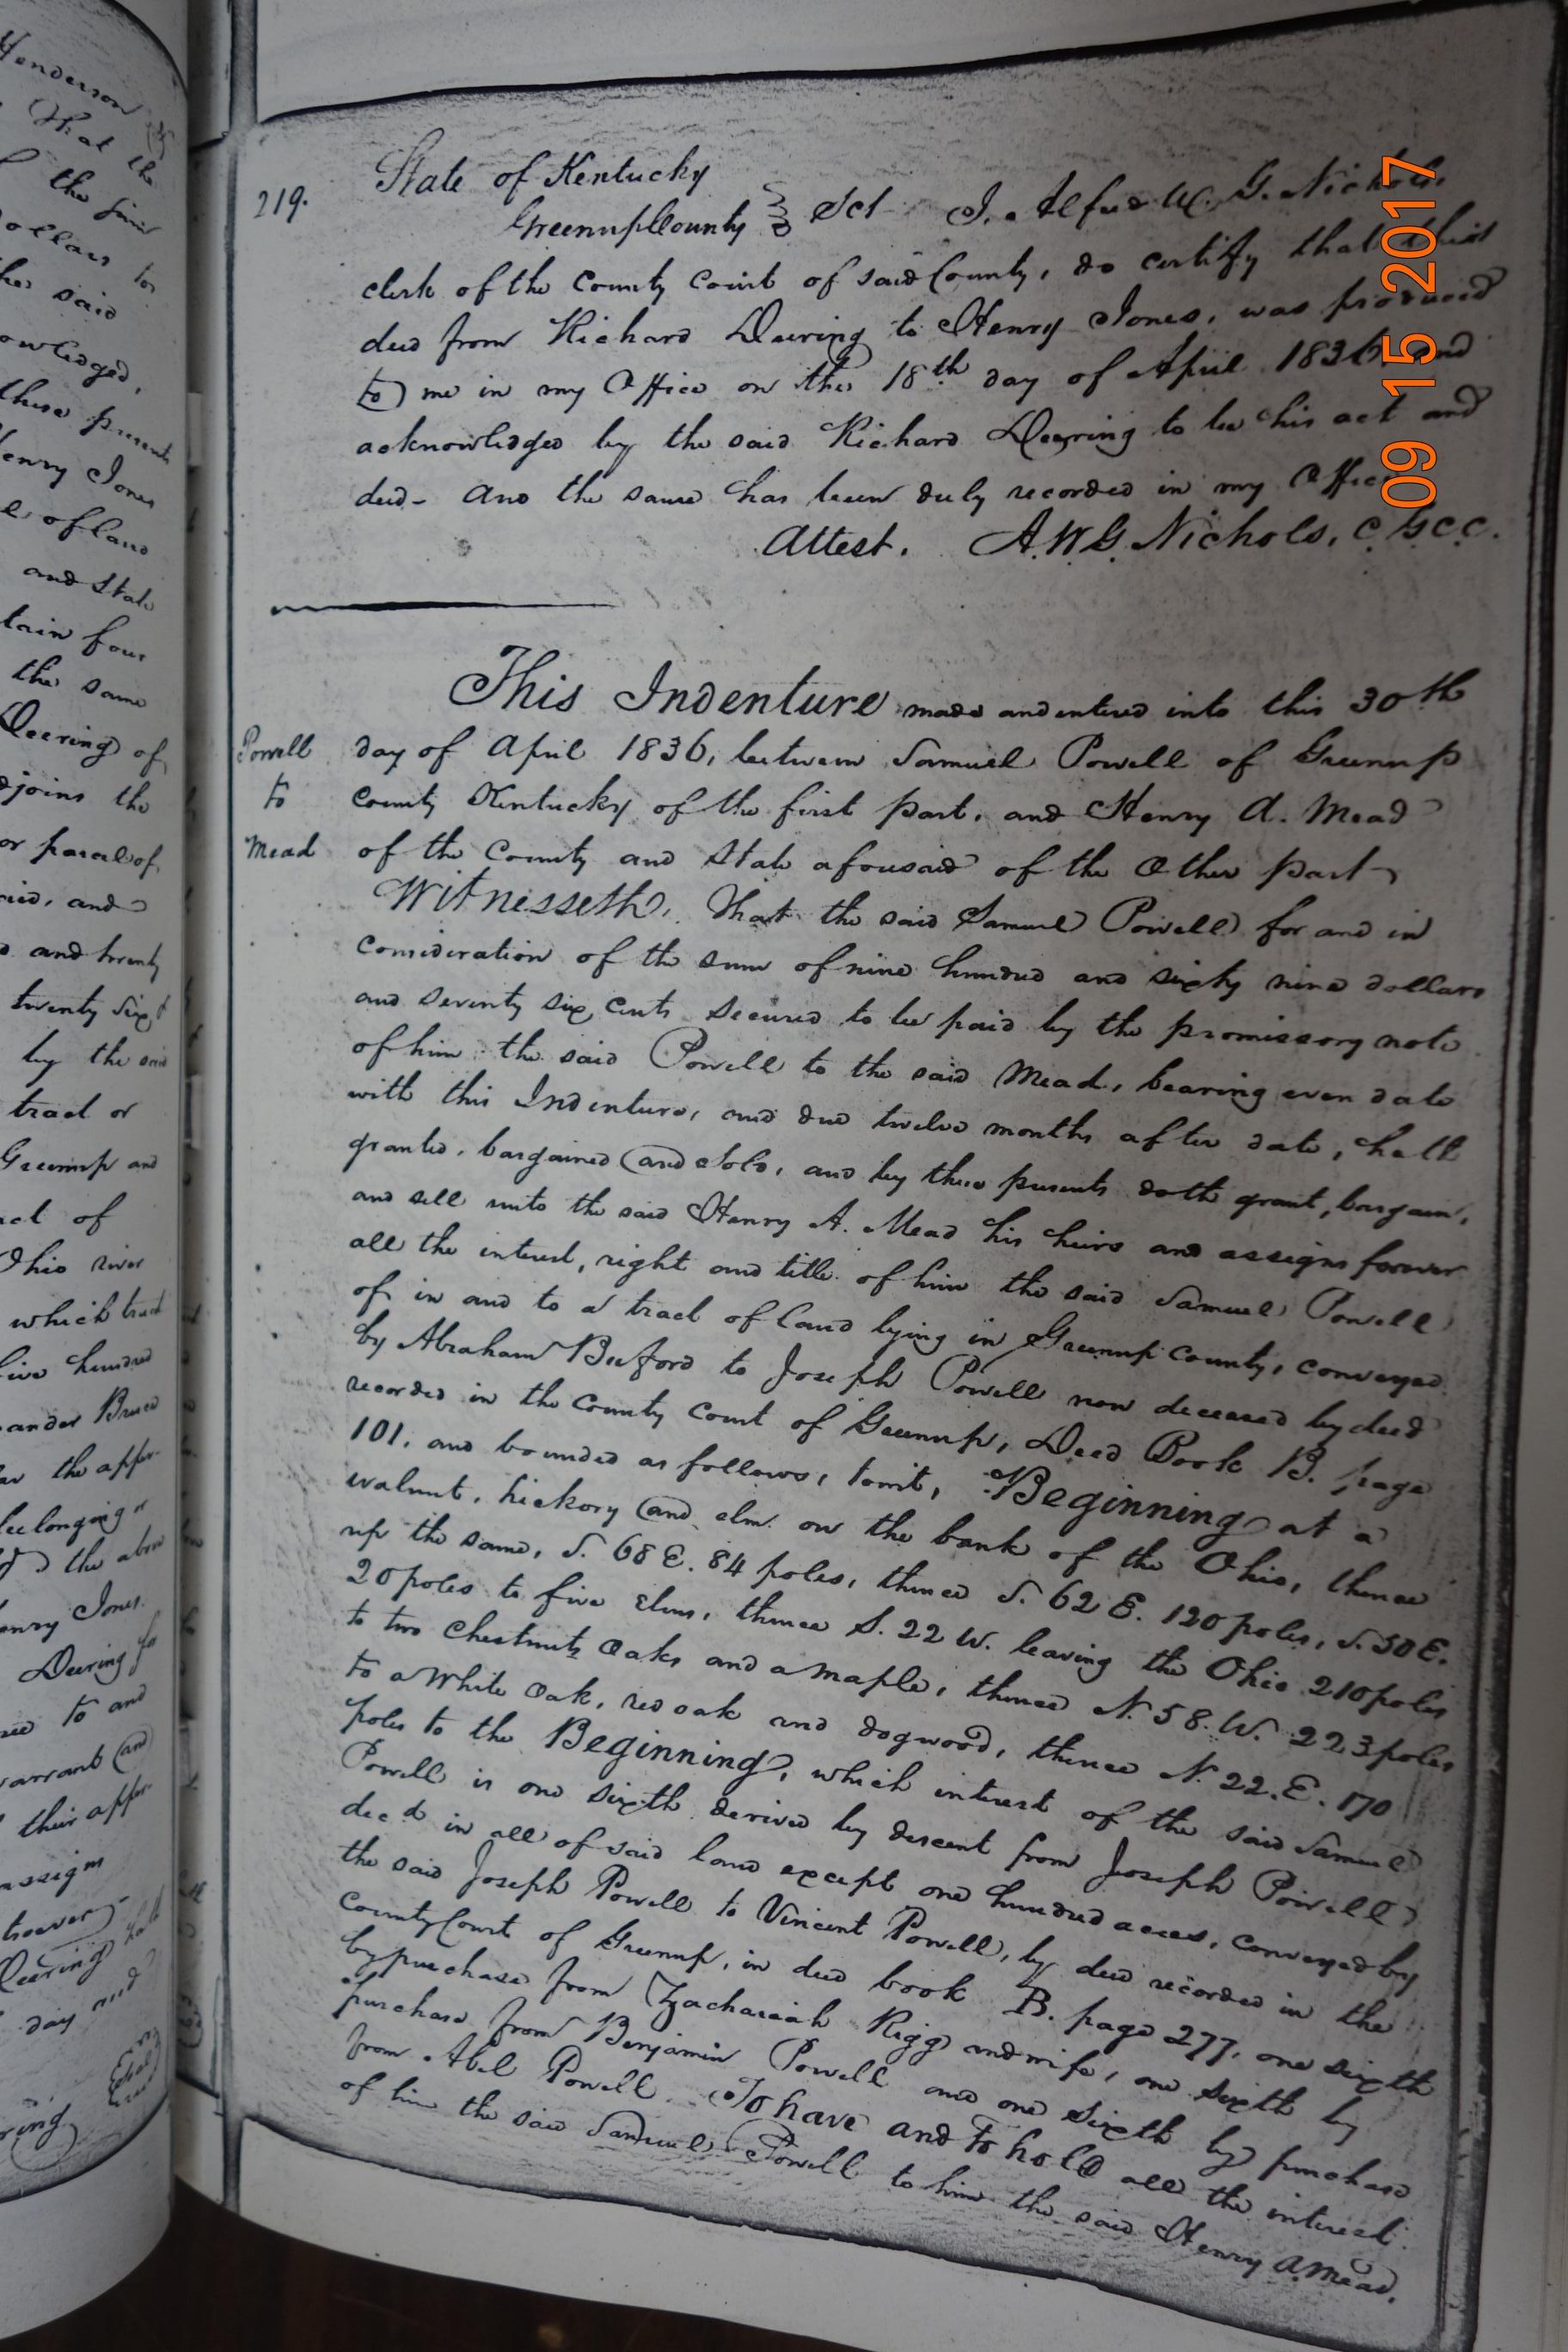 Henderson
That the
the said
dollars to
the said
owledged,
these presents
Henry Jones
of land
and State
tain four
the same
Deering of
djoins the
or parcel of
aid, and
and twenty
twenty six
by the said
tract or
Greenup and
act of
Ohio river
which tract
five hundred
ander Bruce
the appr
belonging or
the above
Henry Jones
Deering for
to and
warrant and
their appr
assigns
forever
Deering hath
day and
219.
State of Kentucky
Greenup County } Sct I. Alfred W. G. Nichols,
clerk of the County Court of said County, do certify that this
deed from Richard Deering to Henry Jones, was produced
to me in my Office on the 18th day of April 1836 and
acknowledged by the said Richard Deering to be his act and
deed- And the same has been duly recorded in my Office
Attest. A.W.G. Nichols, C.G.C.C.
This Indenture made and entered into this 30th
Powell
to
Mead
day of April 1836, between Samuel Powell of Greenup
County Kentucky of the first part, and Henry A. Mead
of the County and State aforesaid of the Other part
Witnesseth, That the said Samuel Powell for and in
consideration of the sum of nine hundred and sixty nine dollars
and seventy six cents secured to be paid by the promissory note
of him the said Powell to the said Mead, bearing even date
with this Indenture, and due twelve months after date, hath
granted, bargained and sold, and by these presents doth grant, bargain,
and sell unto the said Henry A. Mead his heirs and assigns forever
all the interest, right and title of him the said Samuel Powell
of in and to a tract of land lying in Greenup County, conveyed
by Abraham Buford to Joseph Powell now deceased by deed
recorded in the County Court of Greenup, Deed Book B. page
101. and bounded as follows, towit, Beginning at a
walnut, hickory and elm on the bank of the Ohio, thence
up the same, S. 68 E. 84 poles, thence S. 62 E. 120 poles, S. 50 E.
20 poles to five Elms, thence S. 22 W. leaving the Ohio 210 poles
to two Chestnut Oaks and a maple, thence N. 58. W. 223 poles
to a White Oak, red oak and dogwood, thence N. 22. E. 170
poles to the Beginning, which interest of the said Samuel
Powell is one sixth derived by descent from Joseph Powell
decd in all of said land except one hundred acres, conveyed by
the said Joseph Powell to Vincent Powell, by deed recorded in the
County Court of Greenup, in deed book B. page 277, one sixth
by purchase from Zachariah Rigg and wife, one sixth by
purchase from Benjamin Powell and one sixth by purchase
from Abel Powell. To have and to hold all the interest
of him the said Samuel Powell to him the said Henry A. Mead,
09 15 2017